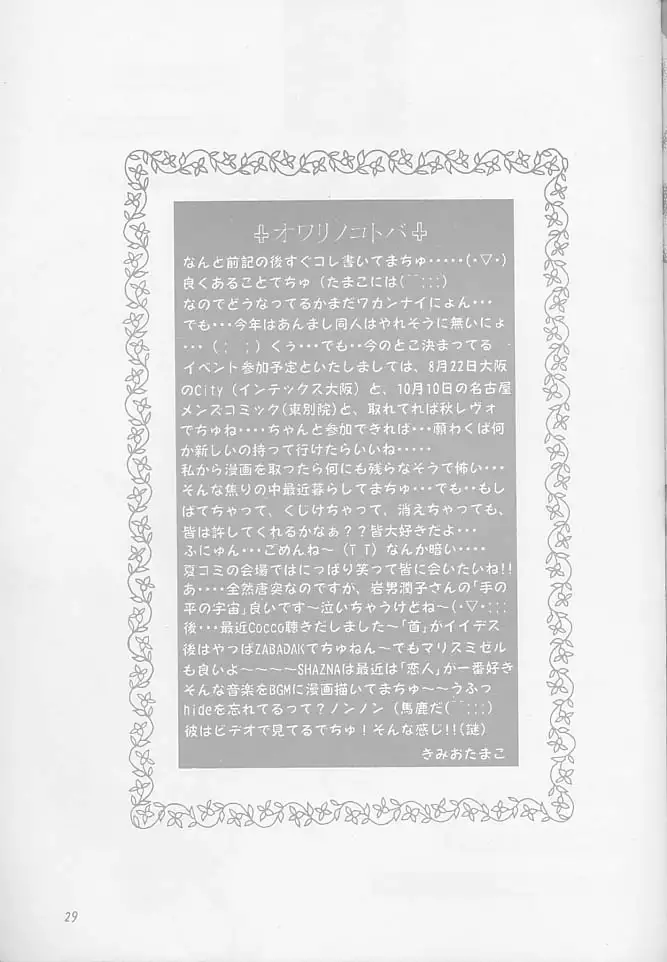 オワリノコトバ
なんと前記の後すぐコレ書いてまちゅ・・・・・・(・▽・)
良くあることでちゅ（たまこには(⌒;;;)
なのでどうなってるかまだワカンナイにょん・・・
でも・・・今年はあんまし同人はやれそうに無いにょ
・・・（；；）くぅ・・・でも・・今のとこ決まってる
イベント参加予定といたしましては、8月22日大阪
のCity（インテックス大阪）と、10月10日の名古屋
メンズコミック(東別院)と、取れてれば秋レヴォ
でちゅね・・・・ちゃんと参加できれば・・・願わくば何
か新しいの持って行けたらいいね・・・・・
私から漫画を取ったら何にも残らなそうで怖い・・・
そんな焦りの中最近暮らしてまちゅ・・・でも・・もし
ばてちゃって、くじけちゃって、消えちゃっても、
皆は許してくれるかなぁ？？皆大好きだよ・・・
ふにゅん・・・ごめんね〜（T T）なんか暗い・・・・
夏コミの会場ではにっぱり笑って皆に会いたいね!!
あ・・・・全然唐突なのですが、岩男潤子さんの「手の
平の宇宙」良いです〜泣いちゃうけどね〜(・▽・;;;
後・・・最近Cocco聴きだしました〜「首」がイイデス
後はやっぱZABADAKでちゅねん〜でもマリスミゼル
も良いよ〜〜〜〜SHAZNAは最近は「恋人」が一番好き
そんな音楽をBGMに漫画描いてまちゅ〜〜うふっ
hideを忘れてるって？ノンノン（馬鹿だ(⌒;;;)
彼はビデオで見てるでちゅ！そんな感じ!!(謎)
きみおたまこ
29